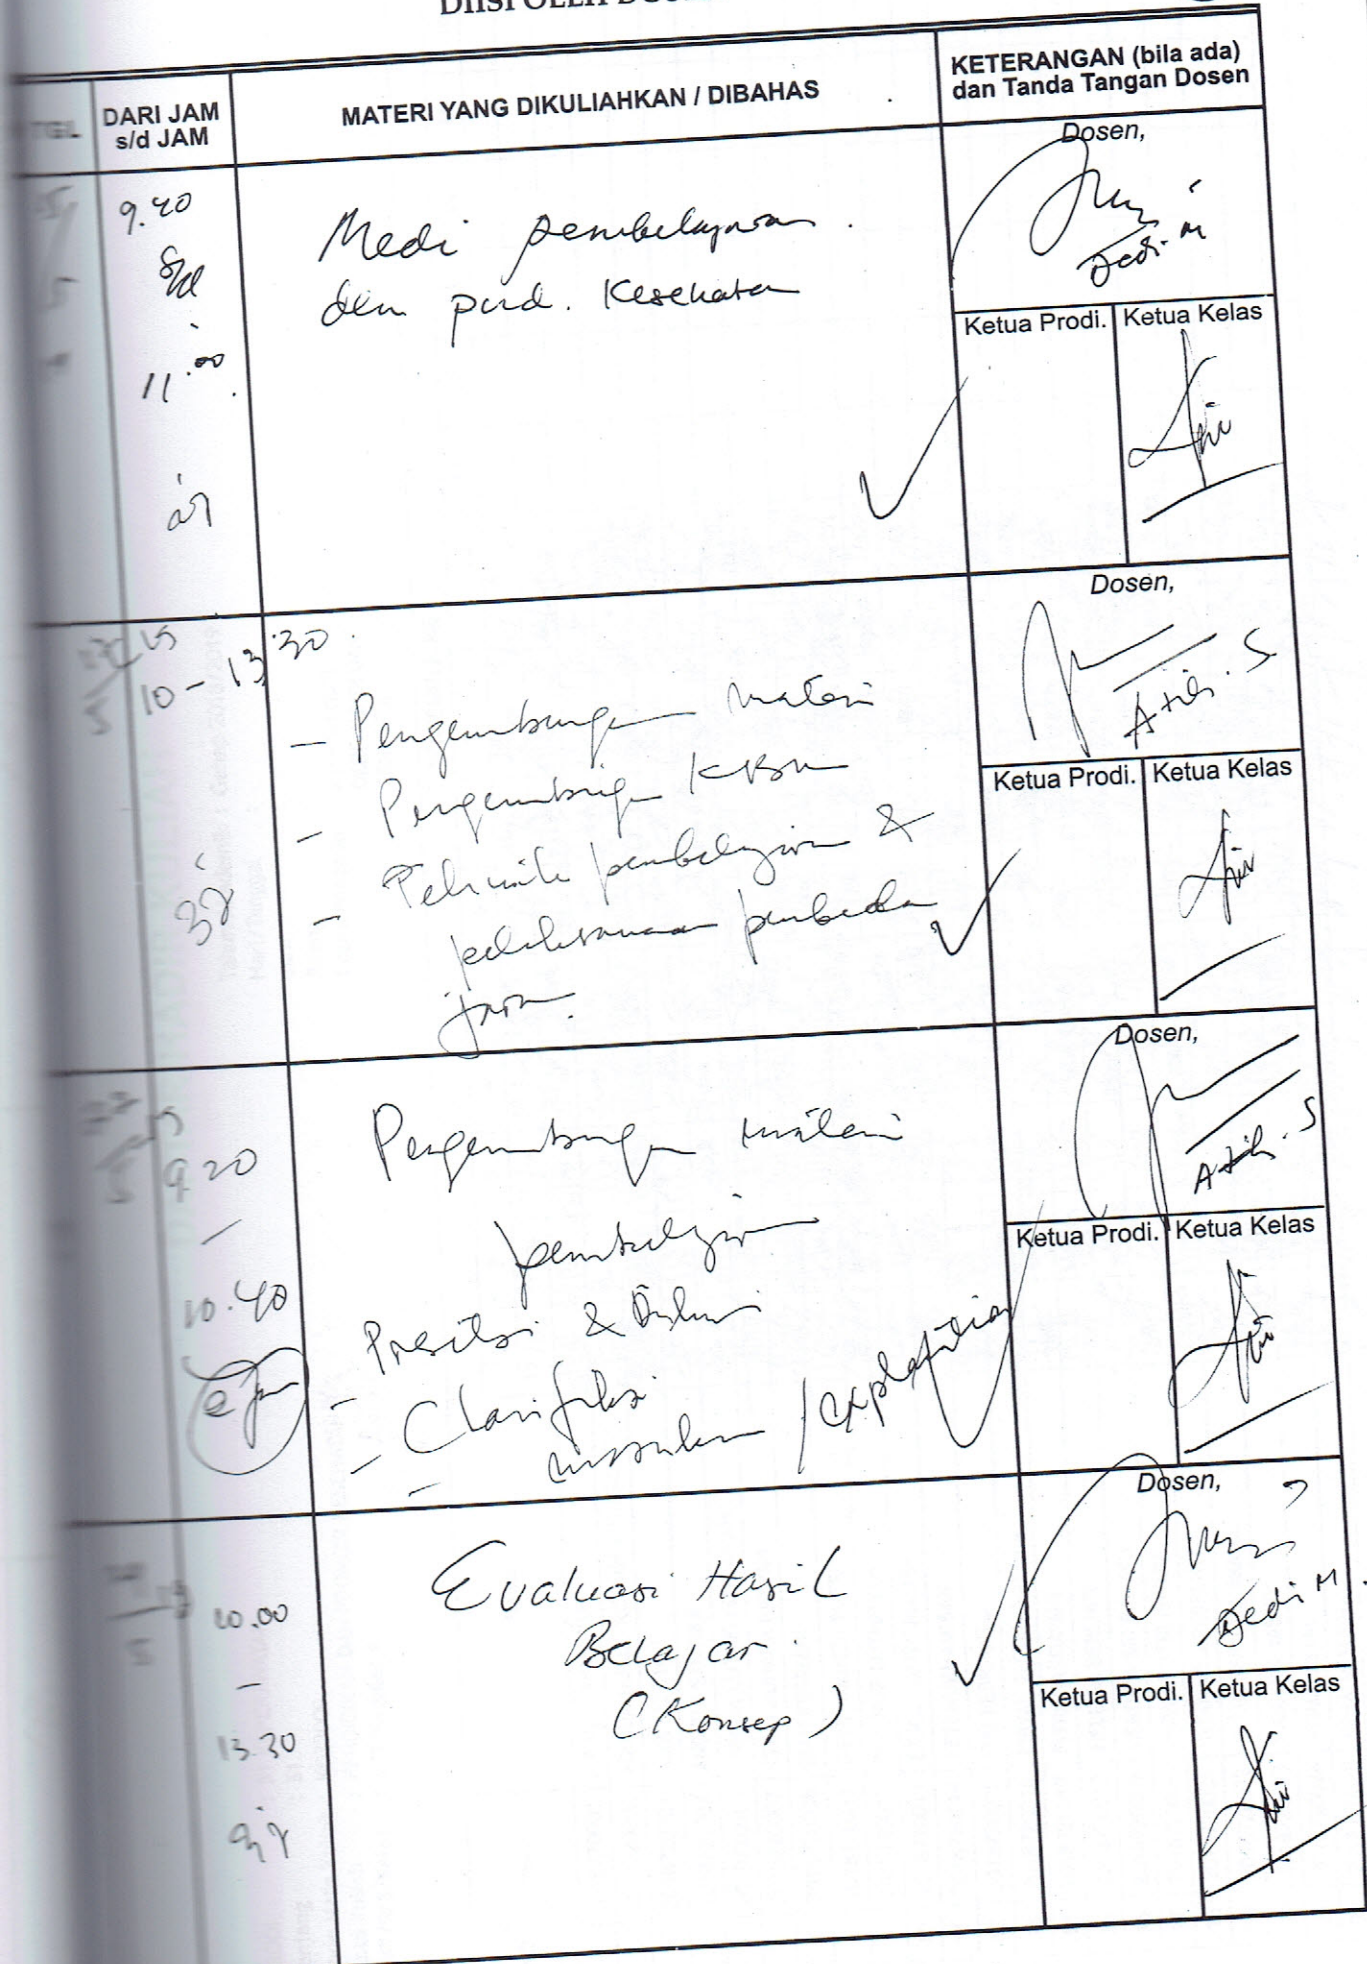 TGL
DARI JAM
s/d JAM
MATERI YANG DIKULIAHKAN / DIBAHAS
KETERANGAN (bila ada)
dan Tanda Tangan Dosen
9.40
s/d
11.00
Medi pembelajaran
dlm pend. Kesehatan
Dosen,
Dedi. M
Ketua Prodi.
Ketua Kelas
10 - 13.30
- Pengembangan materi
- Pengembangan KBM
- Tehnik pembelajaran &
pelaksanaan pembela
jaran.
Dosen,
Atih. S
Ketua Prodi.
Ketua Kelas
9.20
-
10.40
Pengembangan materi
pembelajaran
- Presitasi & Diskusi
- Clarifikasi
- masukan / explanation
Dosen,
Atih. S
Ketua Prodi.
Ketua Kelas
10.00
-
13.30
Evaluasi Hasil
Belajar
(Konsep)
Dosen,
Dedi M
Ketua Prodi.
Ketua Kelas